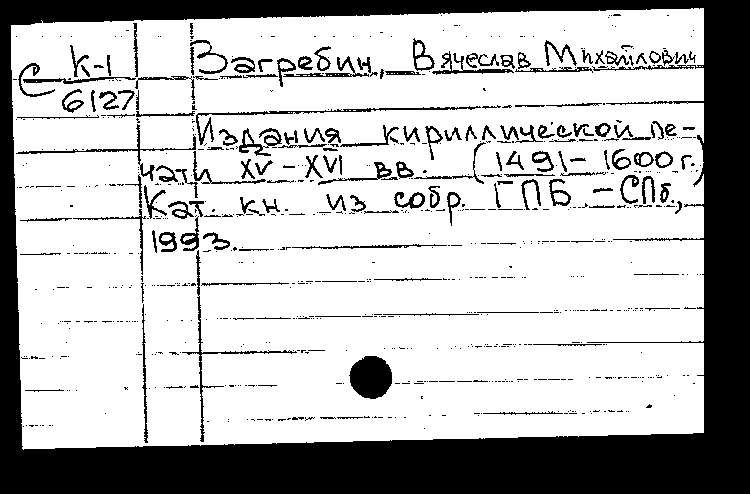 С К-1
6127
Загребин, Вячеслав Михайлович
Издания кириллической пе-
чати XV-XVI вв. (1491-1600 г.)
Кат. кн. из собр. ГПБ. -СПб.,
1993.